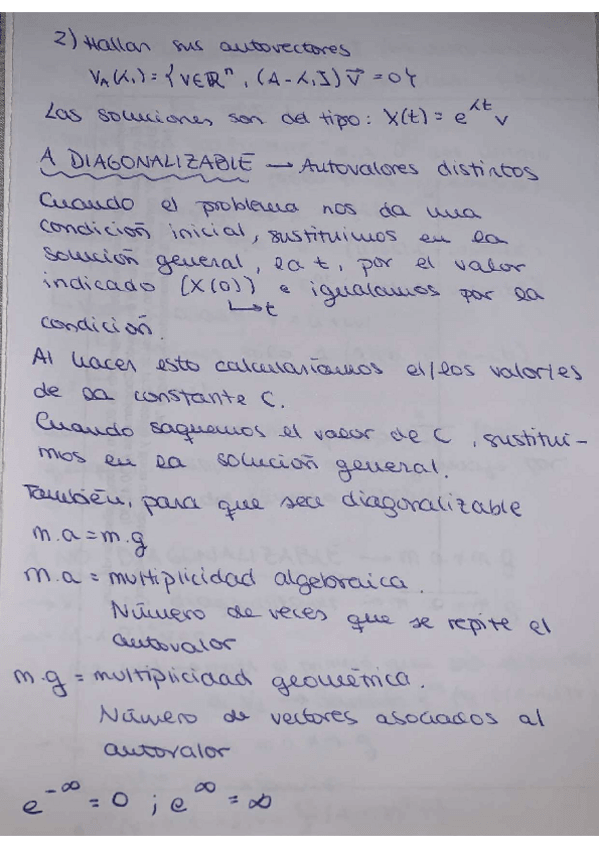 2) Hallan sus autovectores
V_A(λ,) = {V∈ℝⁿ, (A-λ,I) v⃗ = 0}
Las soluciones son del tipo: X(t) = e^λt v
A DIAGONALIZABLE → Autovalores distintos
Cuando el problema nos da una
condición inicial, sustituimos en la
solución general, la t, por el valor
indicado (X(0)) e igualamos por la
↳ t
condición.
Al hacer esto calcularíamos el/los valor/es
de la constante C.
Cuando saquemos el valor de C, sustitui-
mos en la solución general.
También, para que sea diagonalizable
m.a = m.g
m.a = multiplicidad algebraica.
Número de veces que se repite el
autovalor
m.g = multiplicidad geométrica.
Número de vectores asociados al
autovalor
e^-∞ = 0 ; e^∞ = ∞